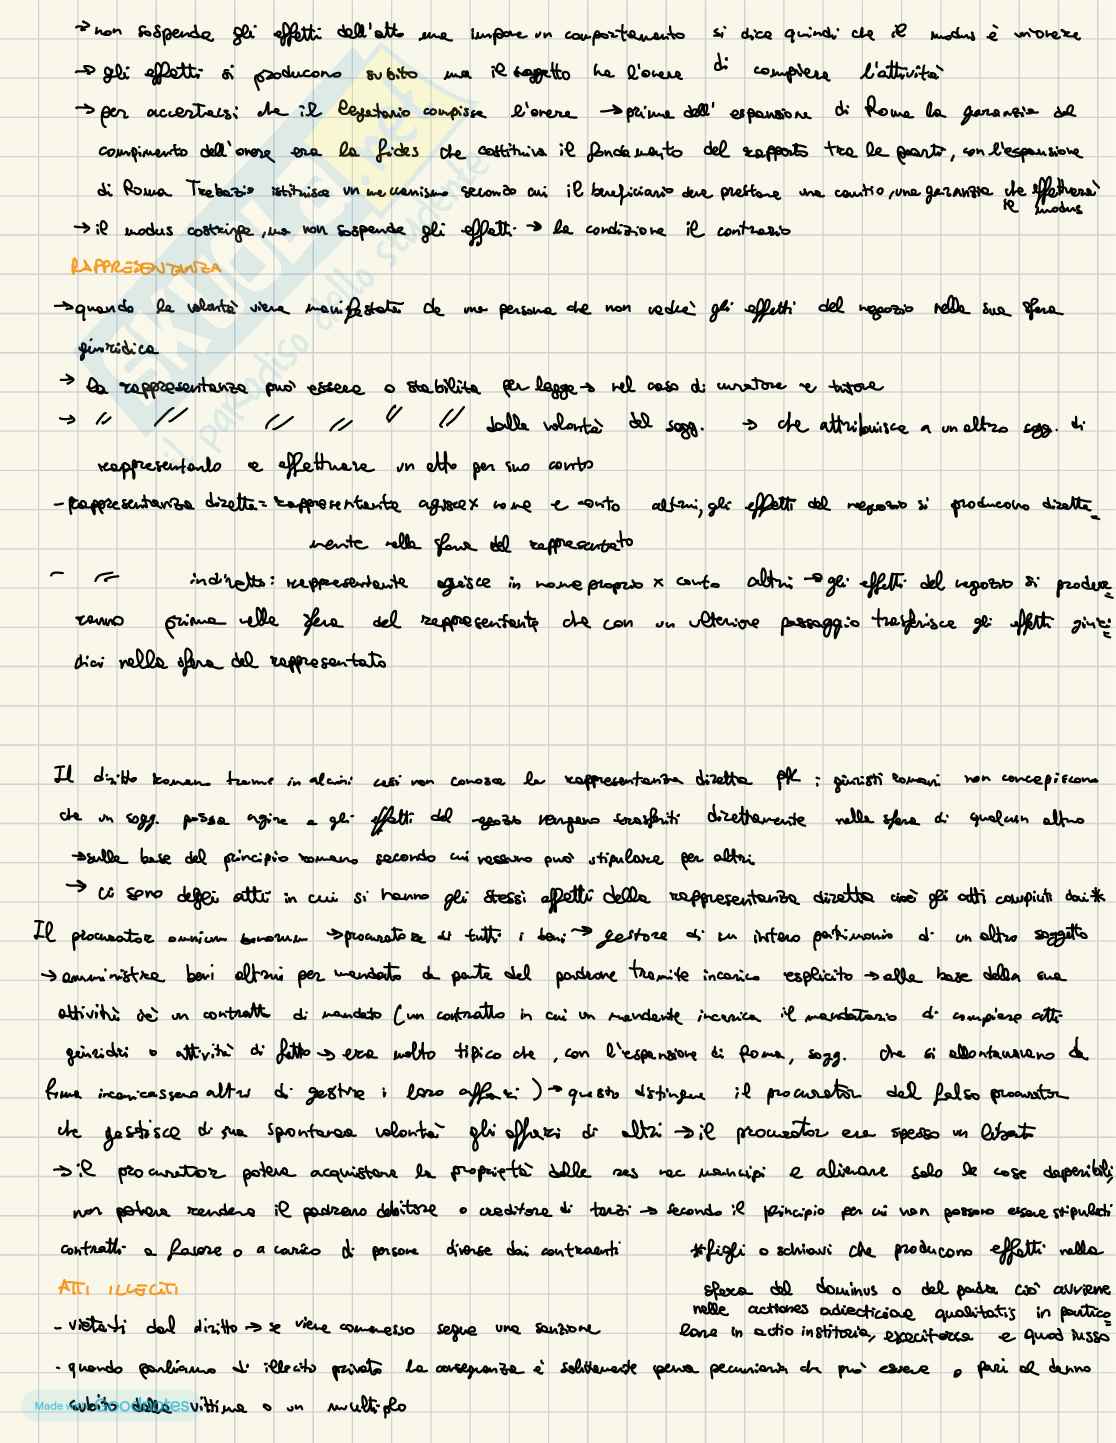 → non sospende gli effetti dell'atto ma impone un comportamento si dice quindi che il modus è onere
→ gli effetti si producono subito ma il soggetto ha l'onere di compiere l'attività
→ per accertarsi che il legatario compisse l'onere → prima dell'espansione di Roma la garanzia del
compimento dell'onere era la fides che costituiva il fondamento del rapporto tra le parti, con l'espansione
di Roma Trebazio istituisce un meccanismo secondo cui il beneficiario deve prestare una cautio, una garanzia che effettuerà
il modus
→ il modus costringe, ma non sospende gli effetti → la condizione il contrario
RAPPRESENTANZA
→ quando la volontà viene manifestata da una persona che non vedrà gli effetti del negozio nella sua sfera
giuridica
→ la rappresentanza può essere o stabilita per legge → nel caso di curatore e tutore
→ " " " " " " dalla volontà del sogg. → che attribuisce a un altro sogg. di
rappresentarlo e effettuare un atto per suo conto
- Rappresentanza diretta = rappresentante agisce x nome e conto altrui, gli effetti del negozio si producono diretta-
mente nella sfera del rappresentato
- " indiretta: rappresentante agisce in nome proprio x conto altrui → gli effetti del negozio si produr=
ranno prima nella sfera del rappresentante che con un ulteriore passaggio trasferisce gli effetti giuri=
dici nella sfera del rappresentato
Il diritto romano tranne in alcuni casi non conosce la rappresentanza diretta pk i giuristi romani non concepiscono
che un sogg. possa agire e gli effetti del negozio vengano trasferiti direttamente nella sfera di qualcun altro
→ sulla base del principio romano secondo cui nessuno può stipulare per altri
→ ci sono degli atti in cui si hanno gli stessi effetti della rappresentanza diretta cioè gli atti compiuti dai*
Il procurator omnium bonorum → procuratore di tutti i beni → gestore di un intero patrimonio di un altro soggetto
→ amministra beni altrui per mandato da parte del padrone tramite incarico esplicito → alla base della sua
attività c'è un contratto di mandato (un contratto in cui un mandante incarica il mandatario di compiere atti
giuridici o attività di fatto → era molto tipico che, con l'espansione di Roma, sogg. che si allontanavano da
Roma incaricassero altri di gestire i loro affari) → questo distingue il procurator dal falso procurator
che gestisce di sua spontanea volontà gli affari di altri → il procurator era spesso un liberto
→ il procurator poteva acquistare la proprietà delle res nec mancipi e alienare solo le cose deperibili,
non poteva rendere il padrone debitore o creditore di terzi → secondo il principio per cui non possono essere stipulati
contratti a favore o a carico di persone diverse dai contraenti
*figli o schiavi che producono effetti nella
sfera del dominus o del padre ciò avviene
nelle actiones adiecticiae qualitatis in partico=
lare in actio institoria, exercitoria e quod iusso
ATTI ILLECITI
- vietati dal diritto → se viene commesso segue una sanzione
- quando parliamo di illecito privato la conseguenza è solitamente pena pecuniaria che può essere o pari al danno
subito dalla vittima o un multiplo
Made with Goodnotes
SKUOLA.net
il paradiso dello studente